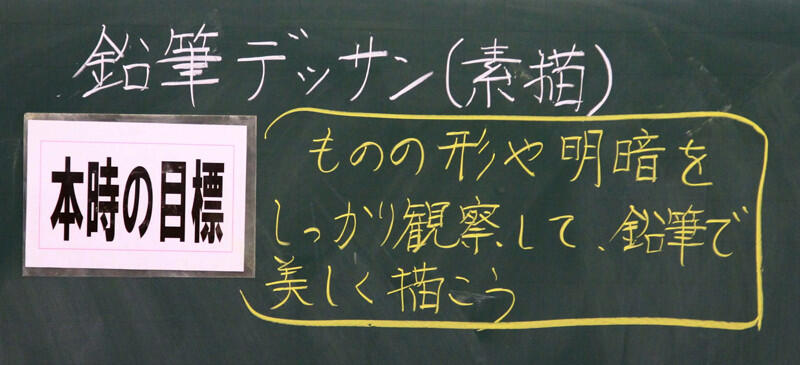 鉛筆デッサン(素描)
本時の目標
ものの形や明暗を
しっかり観察して、鉛筆で
美しく描こう